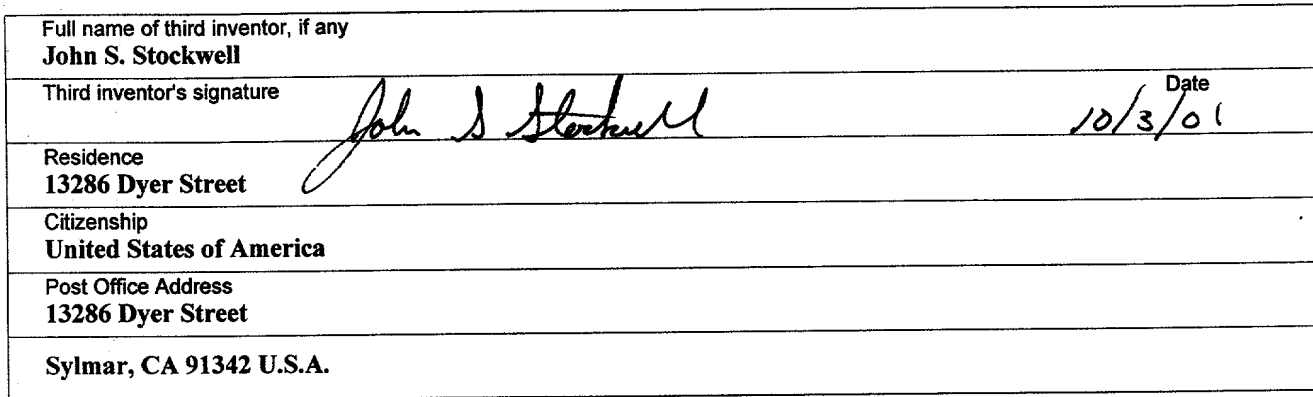 Full name of third inventor, if any
John S. Stockwell
Third inventor's signature John S Stockwell Date
10/3/01
Residence
13286 Dyer Street
Citizenship
United States of America
Post Office Address
13286 Dyer Street
Sylmar, CA 91342 U.S.A.